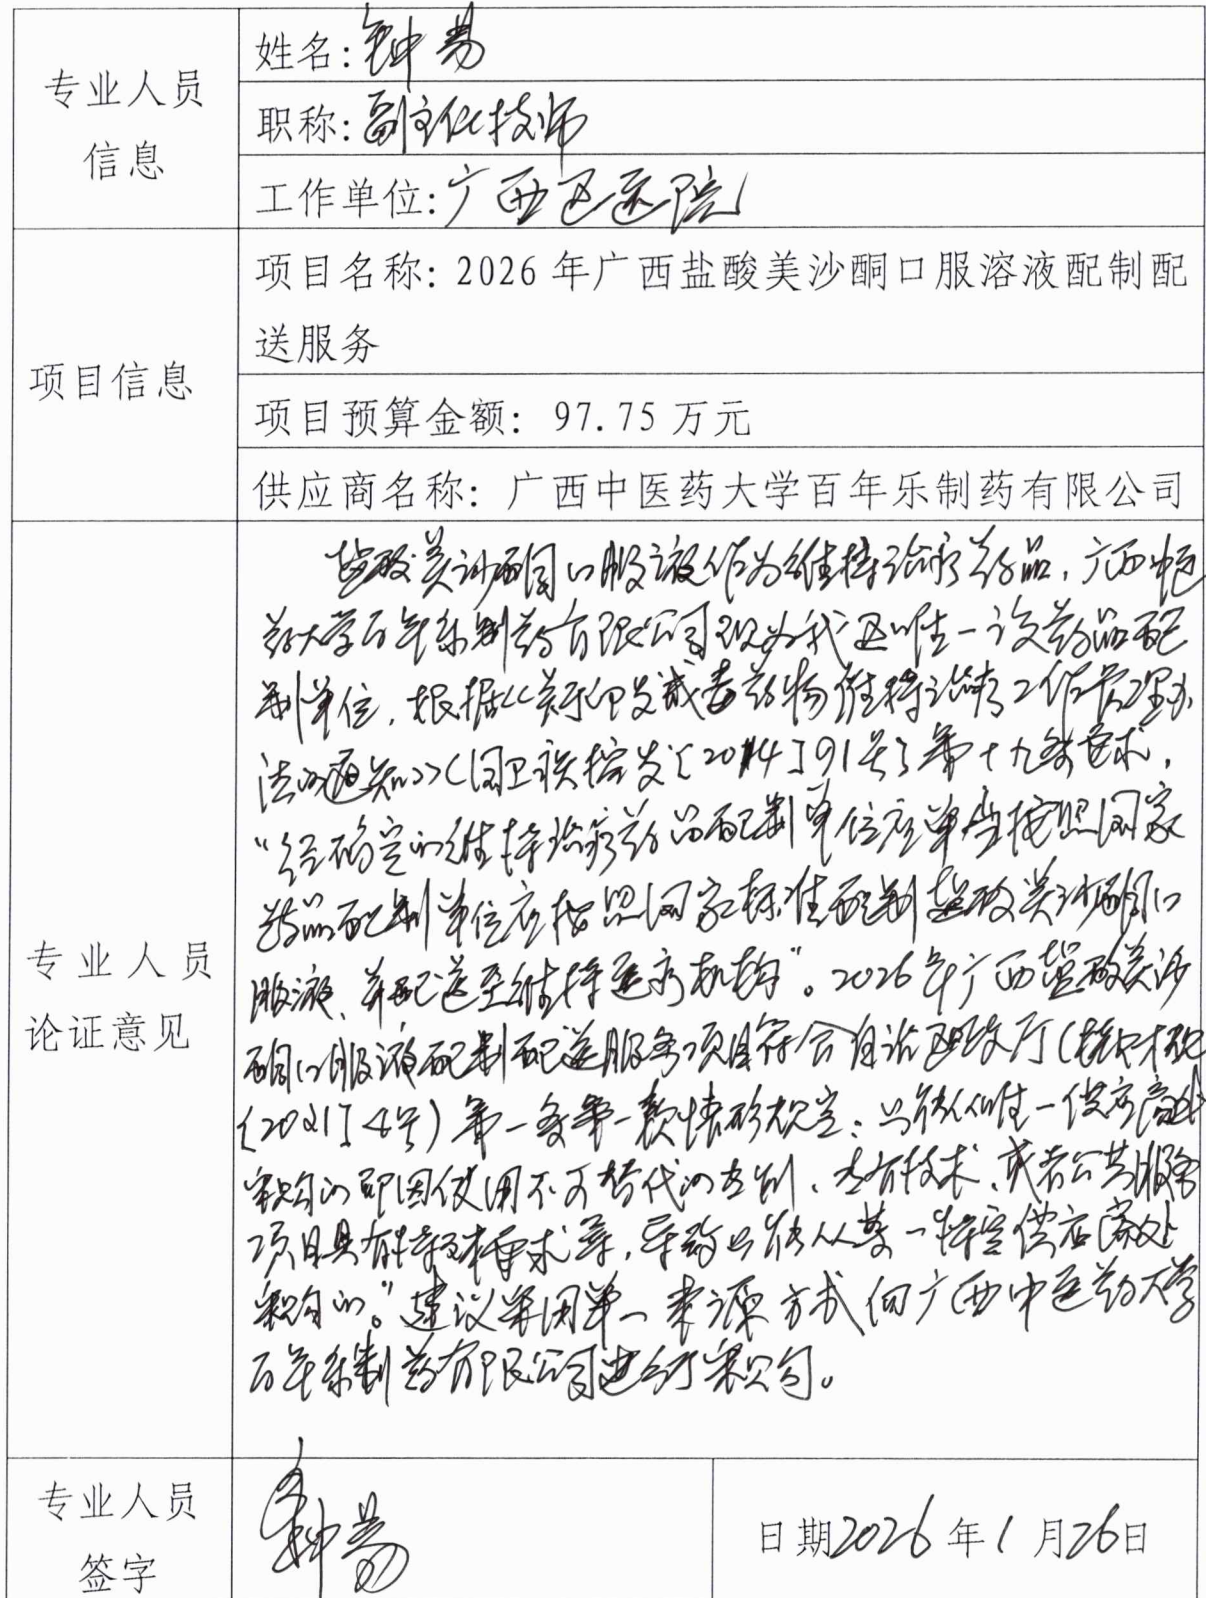 专业人员
信息
姓名:钟易
职称:副主任技师
工作单位:广西区医院
项目信息
项目名称: 2026年广西盐酸美沙酮口服溶液配制配
送服务
项目预算金额: 97.75万元
供应商名称: 广西中医药大学百年乐制药有限公司
专业人员
论证意见
盐酸美沙酮口服液作为维持治疗药品,广西中医
药大学百年乐制药有限公司现为我区唯一该药品配
制单位,根据《关于印发戒毒药物维持治疗工作管理办
法的通知》(国卫疾控发〔2014〕91号)第十九条要求,
“经确定的维持治疗药品配制单位应单当按照国家
药品配制单位应按照国家标准配制盐酸美沙酮口
服液、并配送至维持医疗机构”。2026年广西盐酸美沙
酮口服液配制配送服务项目符合自治区财政厅(桂财采
〔2021〕4号)第一条第一款情形规定:只能从唯一供应商处
采购的即因使用不可替代的专利、专有技术、或者公共服务
项目具有特殊要求等,导致只能从某一特定供应商处
采购的。”建议采用单一来源方式向广西中医药大学
百年乐制药有限公司进行采购。
专业人员
签字
钟易
日期2026年1月26日